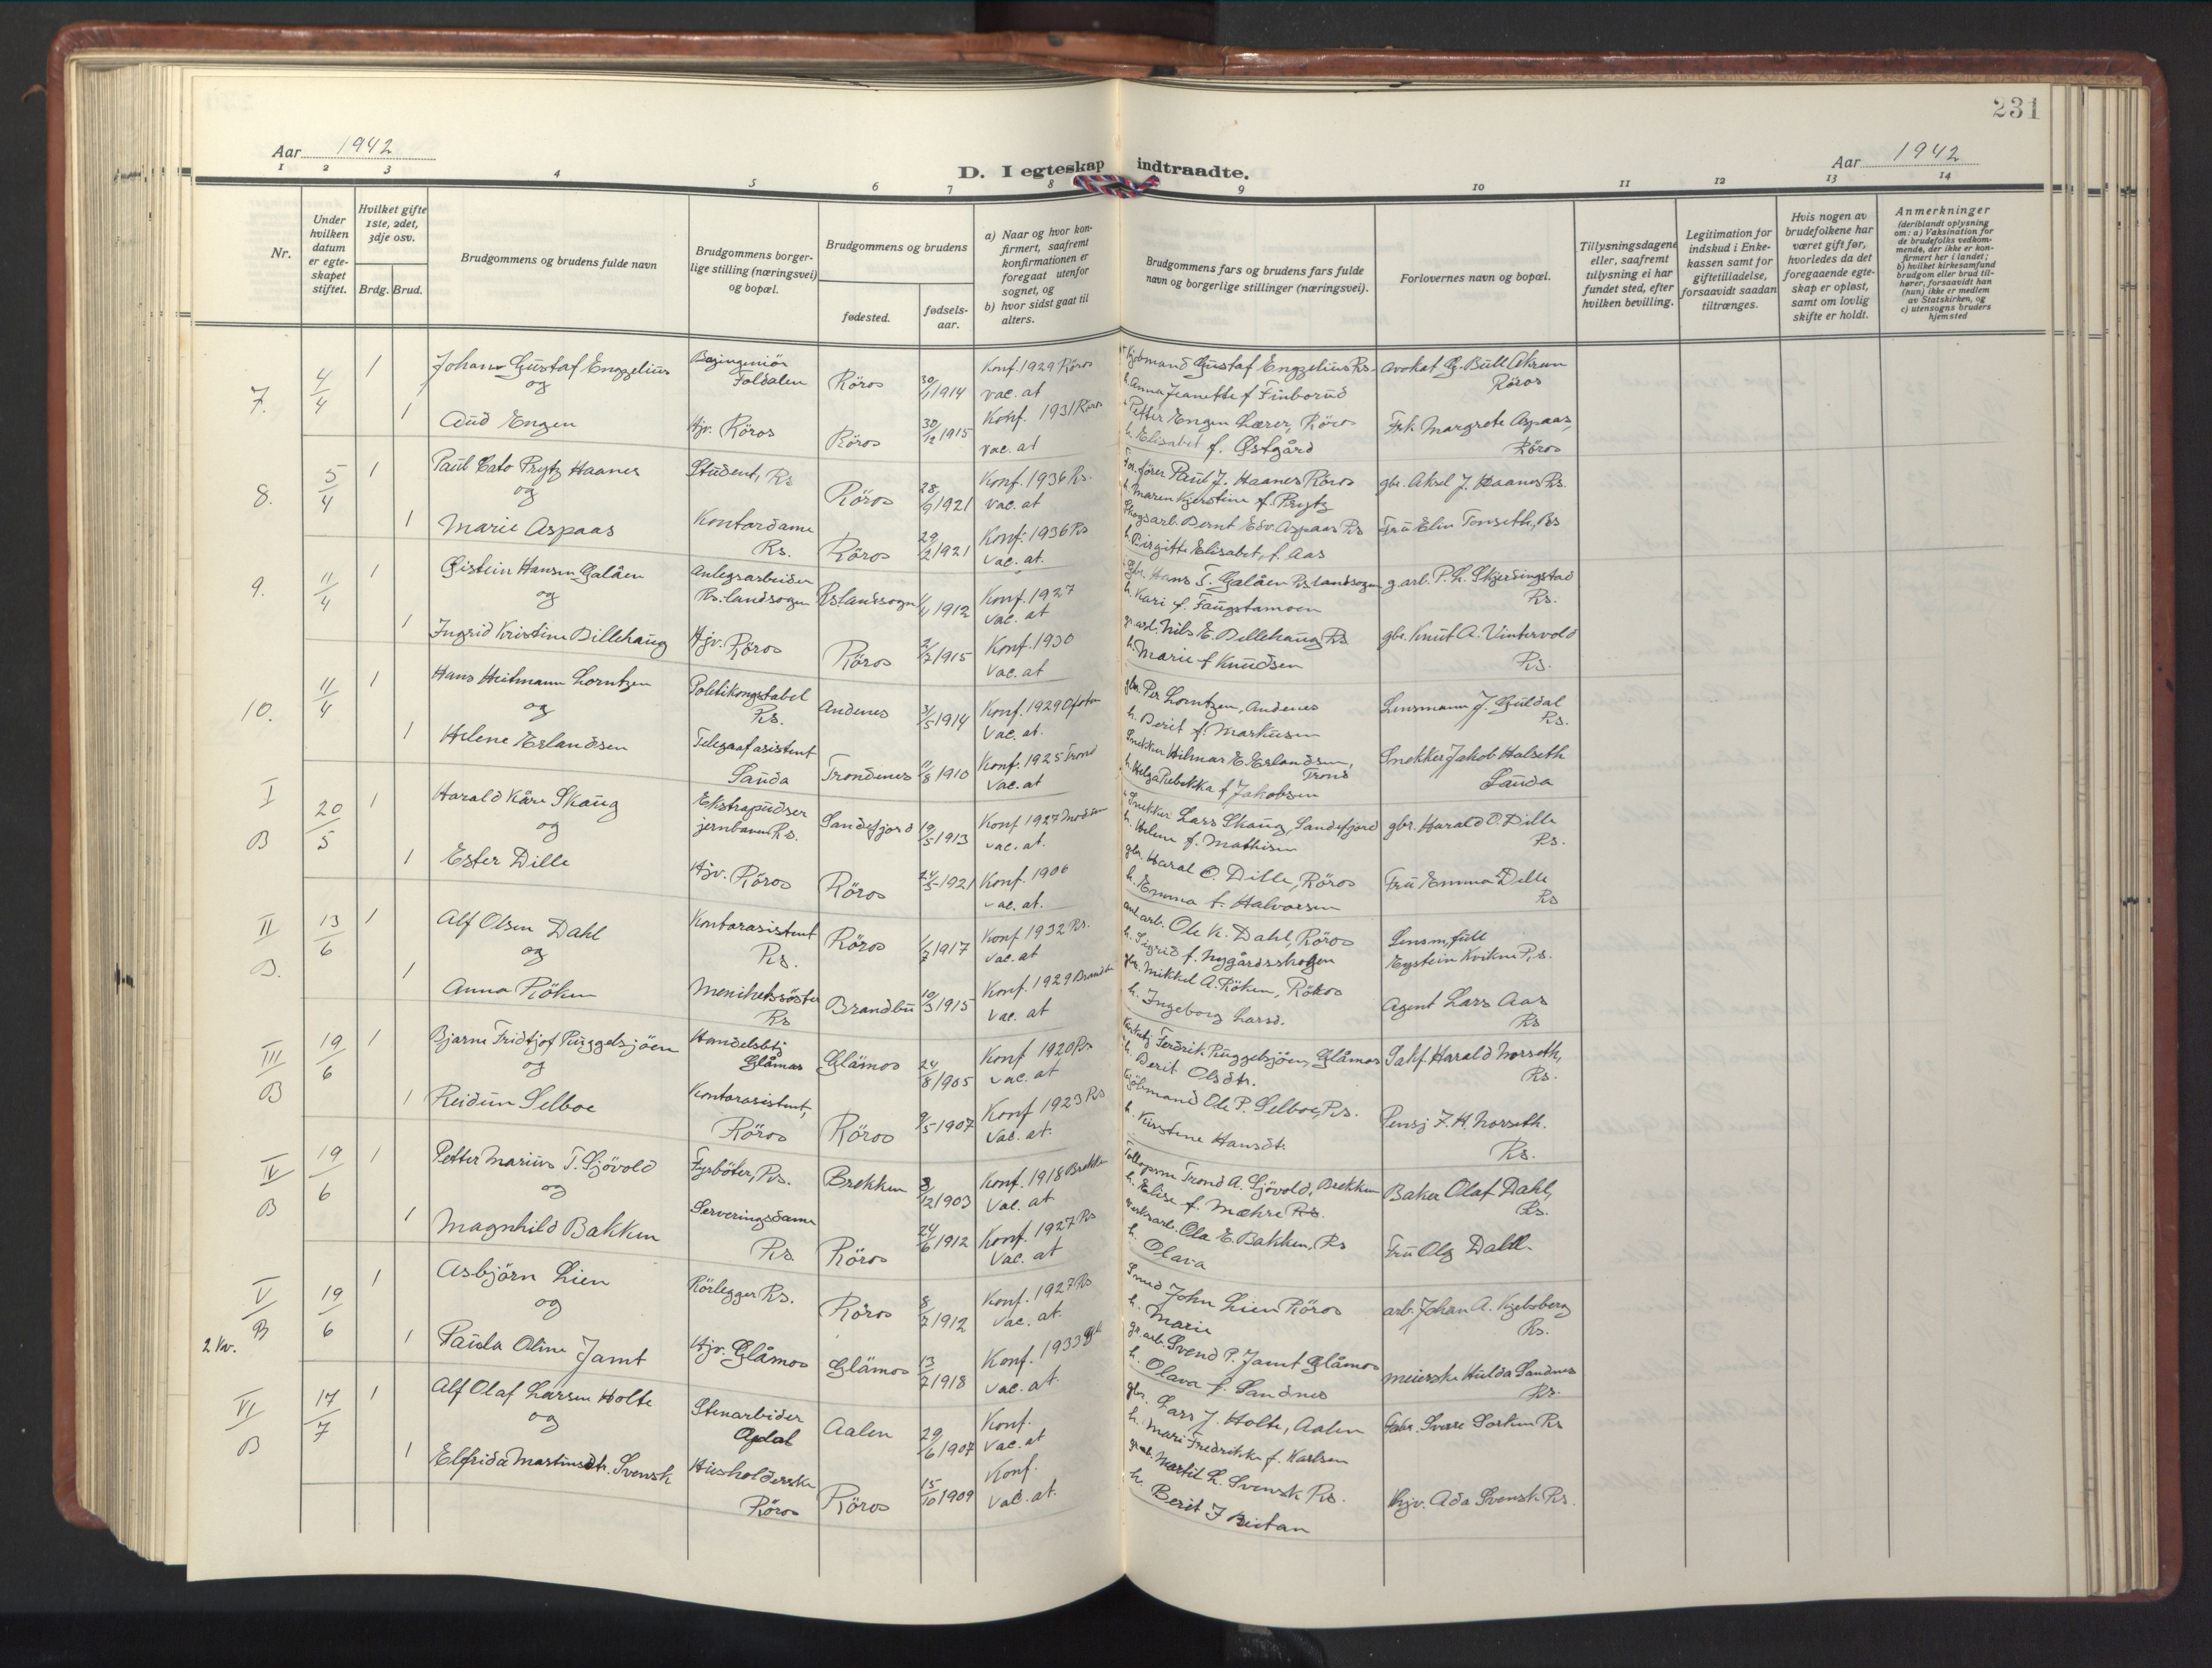 231
Aar 1942
D. I egteskap indtraadte.
Aar 1942
1 2 3 4 5 6 7 8 9 10 11 12 13 14
Nr.
Under hvilken datum er egteskapet stiftet.
Hvilket gifte 1ste, 2det, 3dje osv.
Brdg. Brud.
Brudgommens og brudens fulde navn
Brudgommens borgerlige stilling (næringsvei) og bopæl.
Brudgommens og brudens
fødested.
fødselsaar.
a) Naar og hvor konfirmert, saafremt konfirmationen er foregaat utenfor sognet, og
b) hvor sidst gaat til alters.
Brudgommens fars og brudens fars fulde navn og borgerlige stillinger (næringsvei).
Forlovernes navn og bopæl.
Tillysningsdagene eller, saafremt tillysning ei har fundet sted, efter hvilken bevilling.
Legitimation for indskud i Enkekassen samt for giftetilladelse, forsaavidt saadan tiltrænges.
Hvis nogen av brudefolkene har været gift før, hvorledes da det foregaaende egteskap er opløst, samt om lovlig skifte er holdt.
Anmerkninger (deriblandt oplysning om: a) Vaksination for de brudefolks vedkommende, der ikke er konfirmert her i landet; b) hvilket kirkesamfund brudgom eller brud tilhører, forsaavidt han (hun) ikke er medlem av Statskirken, og c) utensogns bruders hjemsted
7. 4/4 1 Johan Gustaf Engzelius Bergingeniør Foldalen Röros 30/1 1914 Konf. 1929 Röros vac. at Kjøbmand Gustaf Engzelius Rs. h. Anna Jeanette f Finborud Avokat G. Bull Akran Röros
og
1 Aud Engen Hjv. Röros Röros 30/12 1915 Konf. 1931 Röros vac. at Petter Engen Lærer, Röros h. Elisabet f. Østgård Frk. Margrete Aspaas, Röros
8. 5/4 1 Paul Cato Prytz Haanes Student, Rs Röros 28/9 1921 Konf. 1936 Rs. vac. at Paul J. Haanes Röros h. Maren Kjerstine f. Prytz gbr. Aksel J. Haanes Rs.
og
1 Marie Aspaas Kontordame Rs. Röros 29/2 1921 Konf. 1936 Rs vac. at. Skogsarb. Bernt Edv. Aspaas Rs h. Birgitte Elisabet, f. Aas Fru Elin Tonseth, Rs
9. 11/4 1 Øistein Hansen Galåen Anlegsarbeider Rs. landsogn Rs landsogn 1/4 1912 Konf. 1927 vac. at Gbr. Hans T. Galåen Rs landsogn h. Kari f. Faugstamoen g. arb. P. L. Skjerdingstad Rs.
og
1 Ingrid Kristine Dillehaug Hjv. Röros Röros 2/7 1915 Konf. 1930 vac. at gr. arb. Nils E. Dillehaug Rs h. Marie f Knudsen gbr. Knut A. Vintervold Rs.
10. 11/4 1 Hans Heitmann Lorntzen Politikongstabel Rs. Andenes 31/5 1914 Konf. 1929 Ofoten vac. at. gbr. Per Lorntzen, Andenes h. Berit f. Markusen Lensmann J. Guldal Rs.
og
1 Helene Erlandsen Telegrafasistent Sauda Trondenes 11/8 1910 Konf. 1925 Trond vac. at Snekker Hilmar E. Erlandsen, Trond h. Helga Rebekka f Jakobsen Snekker Jakob Halseth Sauda
I B 20/5 1 Harald Kåre Skaug Ekstrapudser jernbanen Rs. Sandefjord 19/5 1913 Konf 1927 vac. at. Snekker Lars Skaug, Sandefjord h. Helene f. Mathisen gbr. Harald O. Dille Rs.
og
1 Ester Dille Hjv. Röros Röros 24/5 1921 Konf. 1906 vac. at. gbr. Haral O. Dille, Röros h. Emma f. Halvorsen Fru Emma Dille Rs
II B. 13/6 1 Alf Olsen Dahl Kontorasistent Rs. Röros 1/7 1917 Konf 1932 Rs. vac. at arb. Ole K. Dahl, Röros h. Sigrid f. Nygårdshalsen Lensm. full Eystein Kvikne Rs.
og
1 Anna Röken Menihetssöster Rs Brandbu 10/3 1915 Konf. 1929 Brandbu vac. at gbr. Mikkel A. Röken, Röros h. Ingeborg Larsd. Agent Lars Aas Rs
III B 19/6 1 Bjarne Fridtjof Ruggelsjöen Handelsbtj Glåmos Glåmos 24/8 1905 Konf 1920 Rs vac. at Ferdrik Ruggelsjöen, Glåmos h. Berit Olsdtr. Sahf. Harald Norseth, Rs.
og
1 Reidun Selboe Kontorasistent, Röros Röros 9/5 1907 Konf 1923 Rs vac. at. Kjöbmand Ole P. Selboe, Rs. h. Kirstine Hansdt. Pensj F. H. Norseth. Rs.
IV B 19/6 1 Petter Marius T. Sjövold Fyrböter, Rs. Brekken 3/12 1903 Konf. 1918 Brekken vac. at Trond A. Sjövold, Brekken h. Elise f. Mæhre Rs. Baker Olaf Dahl, Rs.
og
1 Magnhild Bakken Serveringsdame Rs. Röros 24/6 1912 Konf. 1927 Rs vac. at verksarb. Ola E. Bakken, Rs h. Olava Fru Olg Dahl.
V B 19/6 1 Asbjörn Lien Rörlegger Rs. Röros 8/7 1912 Konf. 1927 Rs vac. at. Smed John Lien Röros h. Marie arb. Johan A. Kjelsberg Rs.
og
2 Kv. 1 Paula Oline Jamt Hjv. Glåmos Glåmos 13/7 1918 Konf. 1933 vac. at. gr. arb. Svend P. Jamt Glåmos h. Olava f. Sandnes meierske Hulda Sandnes Rs.
VI B 17/7 1 Alf Olaf Larsen Holte Stenarbider Opdal Aalen 29/6 1907 Konf. vac. at gbr. Lars J. Holte, Aalen h. Mari Fredrikke f. Karlsen Sverre Sorken Rs
og
1 Elfrida Martinusdtr. Svensk Husholderske Röros Röros 15/10 1909 Konf. vac. at. gr. arb. Martil L. Svensk Rs. h. Berit J Beitan Hjv. Ada Svensk Rs.